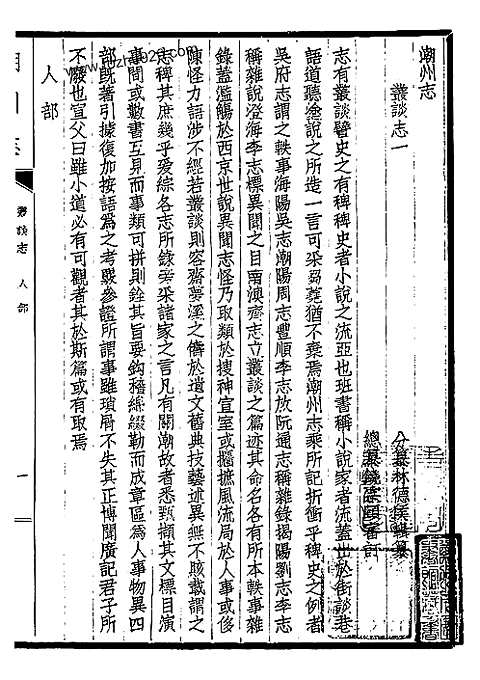 潮州志
叢談志一
分纂林德侯輯纂
總纂饒宗頤審訂
志有叢談譬史之有稗稗史者小說之流亞也班書稱小說家者流蓋出於街談巷
語道聽塗說之所造一言可采芻蕘猶不棄焉潮州志乘所記折衝乎稗史之例者
吳府志謂之軼事海陽吳志潮陽周志豐順李志放阮通志稱雜錄揭陽劉志李志
稱雜說澄海李志標異聞之目南澳齊志立叢談之篇迹其命名各有所本軼事雜
錄蓋濫觴於西京世說異聞志怪乃取類於搜神宣室或攟摭風流局於人事或侈
陳怪力語涉不經若叢談則容齋夢溪之儔於遺文舊典技藝述異無不賅載謂之
志稗其庶幾乎爰綜各志所錄旁采諸家之言凡有關潮故者悉甄擷其文標目演
事間或數書互見而事類可拼則銓其旨要鈎稽綿綴勒而成章區爲人事物異四
部既著引據復加按語爲之考覈參證所謂事雖瑣屑不失其正博聞廣記君子所
不廢也宣父曰雖小道必有可觀者其於斯篇或有取焉
人部
叢談志 人部
一